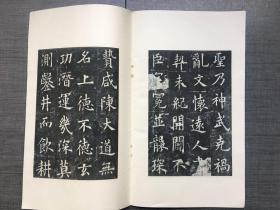 聖乃神武克禍
亂文懷遠人書
契未紀開闢不
臣冠冕並襲琛
贄咸陳大道無
名上德不德玄
功潛運幾深莫
測鑿井而飲耕